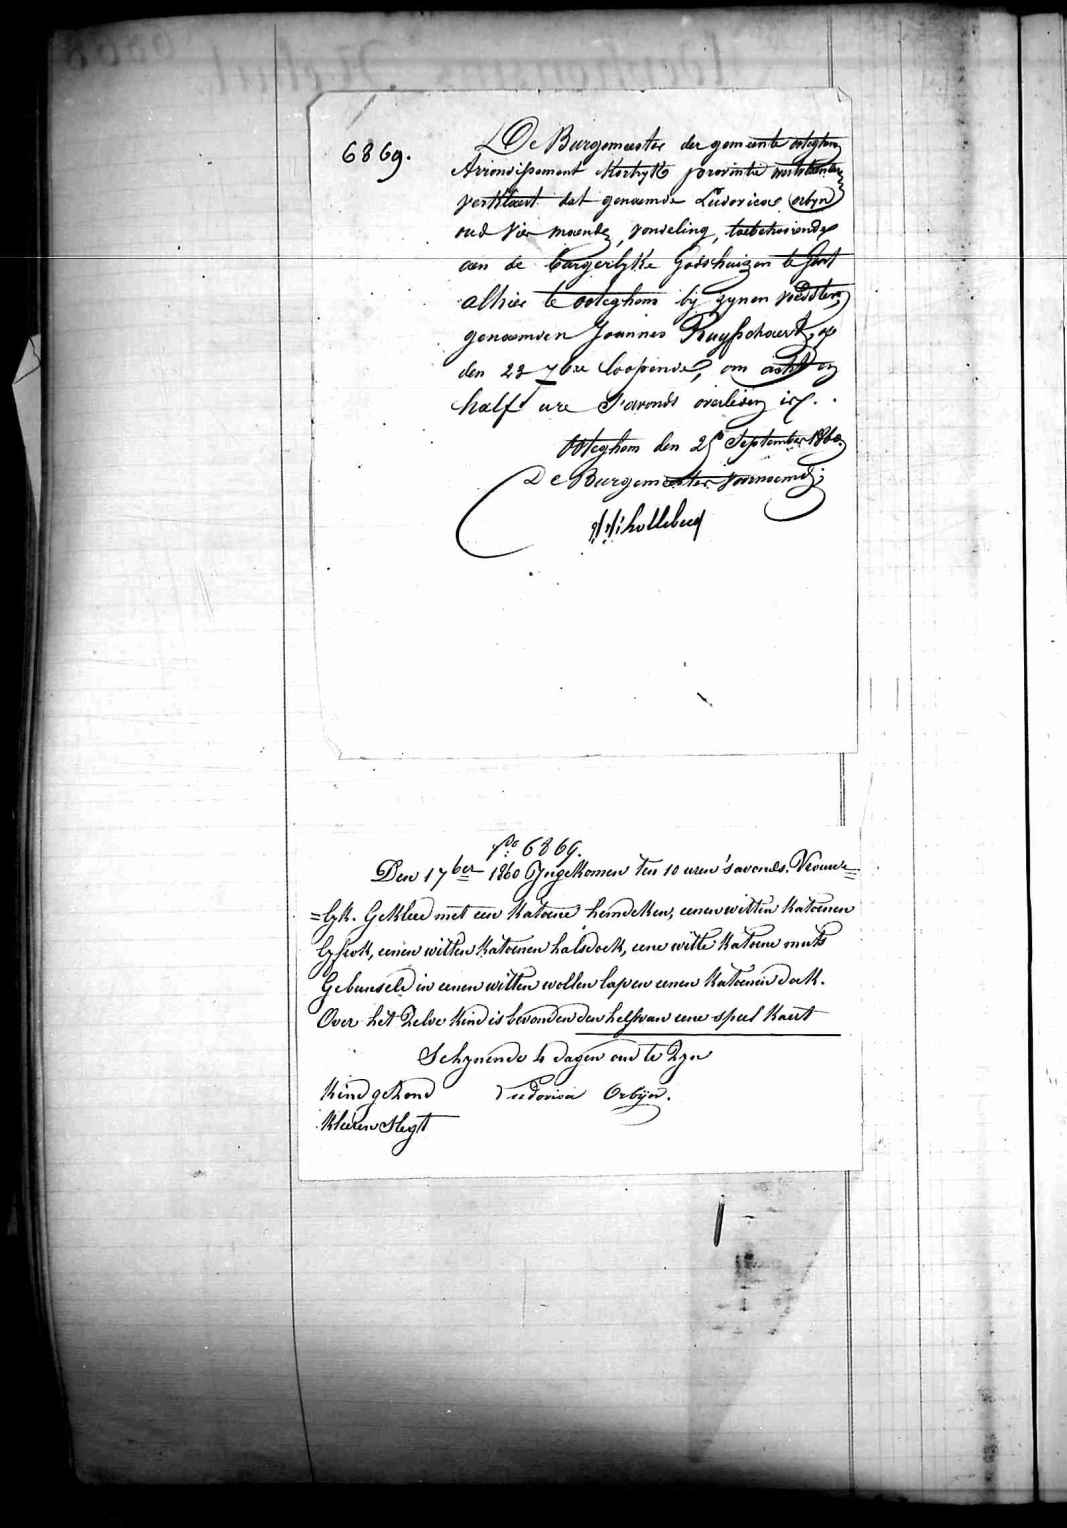 6869.
De Burgemeester der gemeente ooteghem
Arrondissement Kortryk provintie westvlaenderen
verklaert dat genaemde Ludovicus Orbyn
oud vier maenden, vondeling, toebehoorende
aen de burgerlyke godshuizen te Gent
alhier te ooteghem by zynen voedster
genaemden Joannes Ruysschaert, op
den 23 7bre loopende, om acht en
half ure s'avonds overleden is.
Ooteghem den 25 September 1860
De Burgemeester voornoemd;
No 6869.
Den 17 ber 1860 Ingekomen ten 10 uren s'avonds. Vrouwe=
=lyk. Gekleed met een katoene hemdeken, eenen witten katoenen
lyfrok, eenen witten katoenen halsdoek, eene witte katoene muts
Gebunseld in eenen witten wollen lap en eenen katoenen doek.
Over het zelve kind is bevonden den helft van eene speel kaert
Schynende 4 dagen oud te zyn
Kind gezond Ludovica Orbyn.
Kleeren slegt